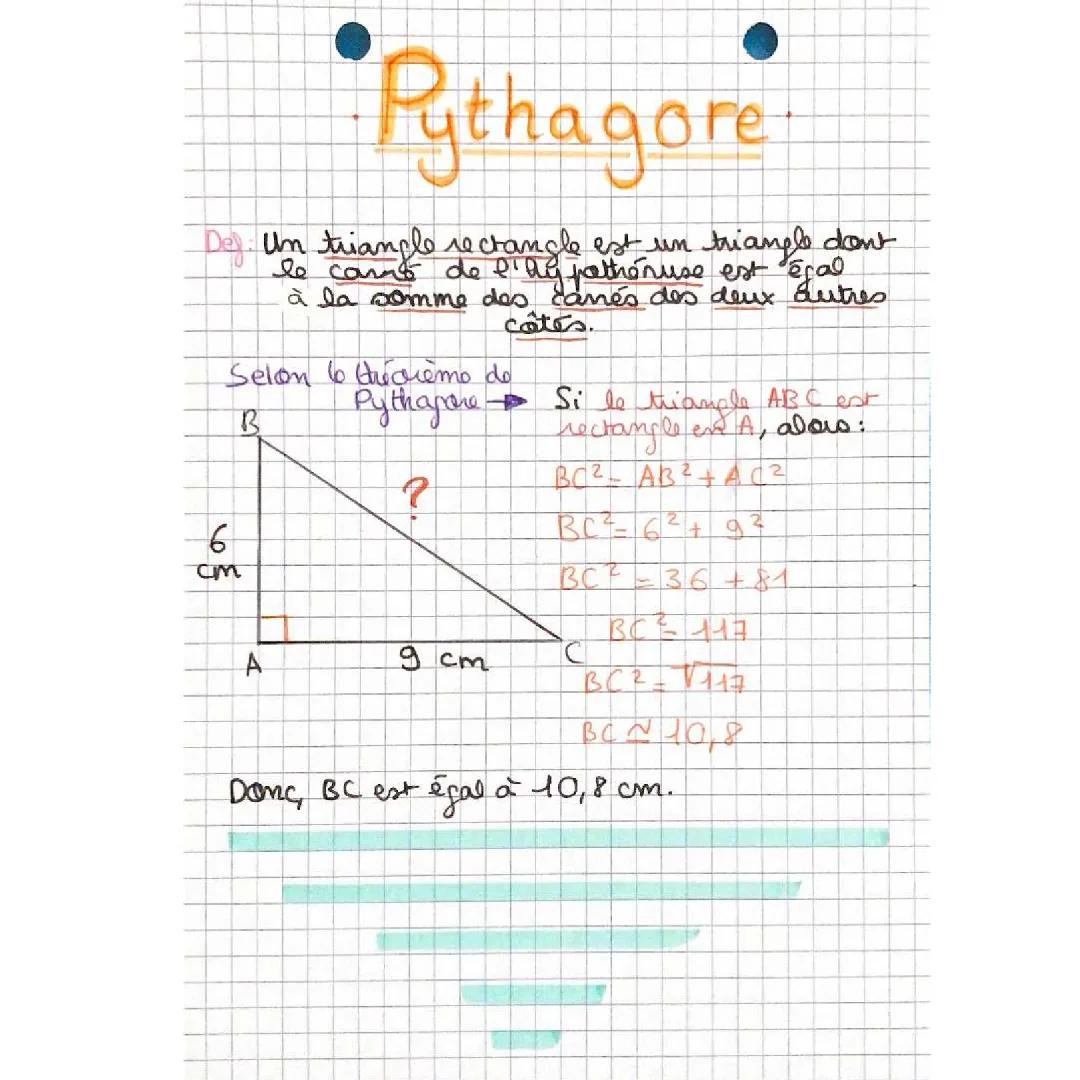 Pythagore
Def: Un triangle rectangle est un triangle dont
le carré de l'hypothénuse est égal
à la somme des carrés des deux autres
côtés.
Selon le théorème de
Pythagore → Si le triangle ABC est
rectangle en A, alors:
B
?
6
cm
A
9 cm
C
BC² = AB² + AC²
BC² = 6² + 9²
BC² = 36 + 81
BC² = 117
BC² = √117
BC ≃ 10,8
Donc, BC est égal à 10,8 cm.